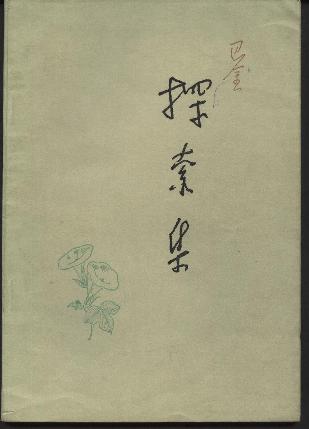 巴金
探索集